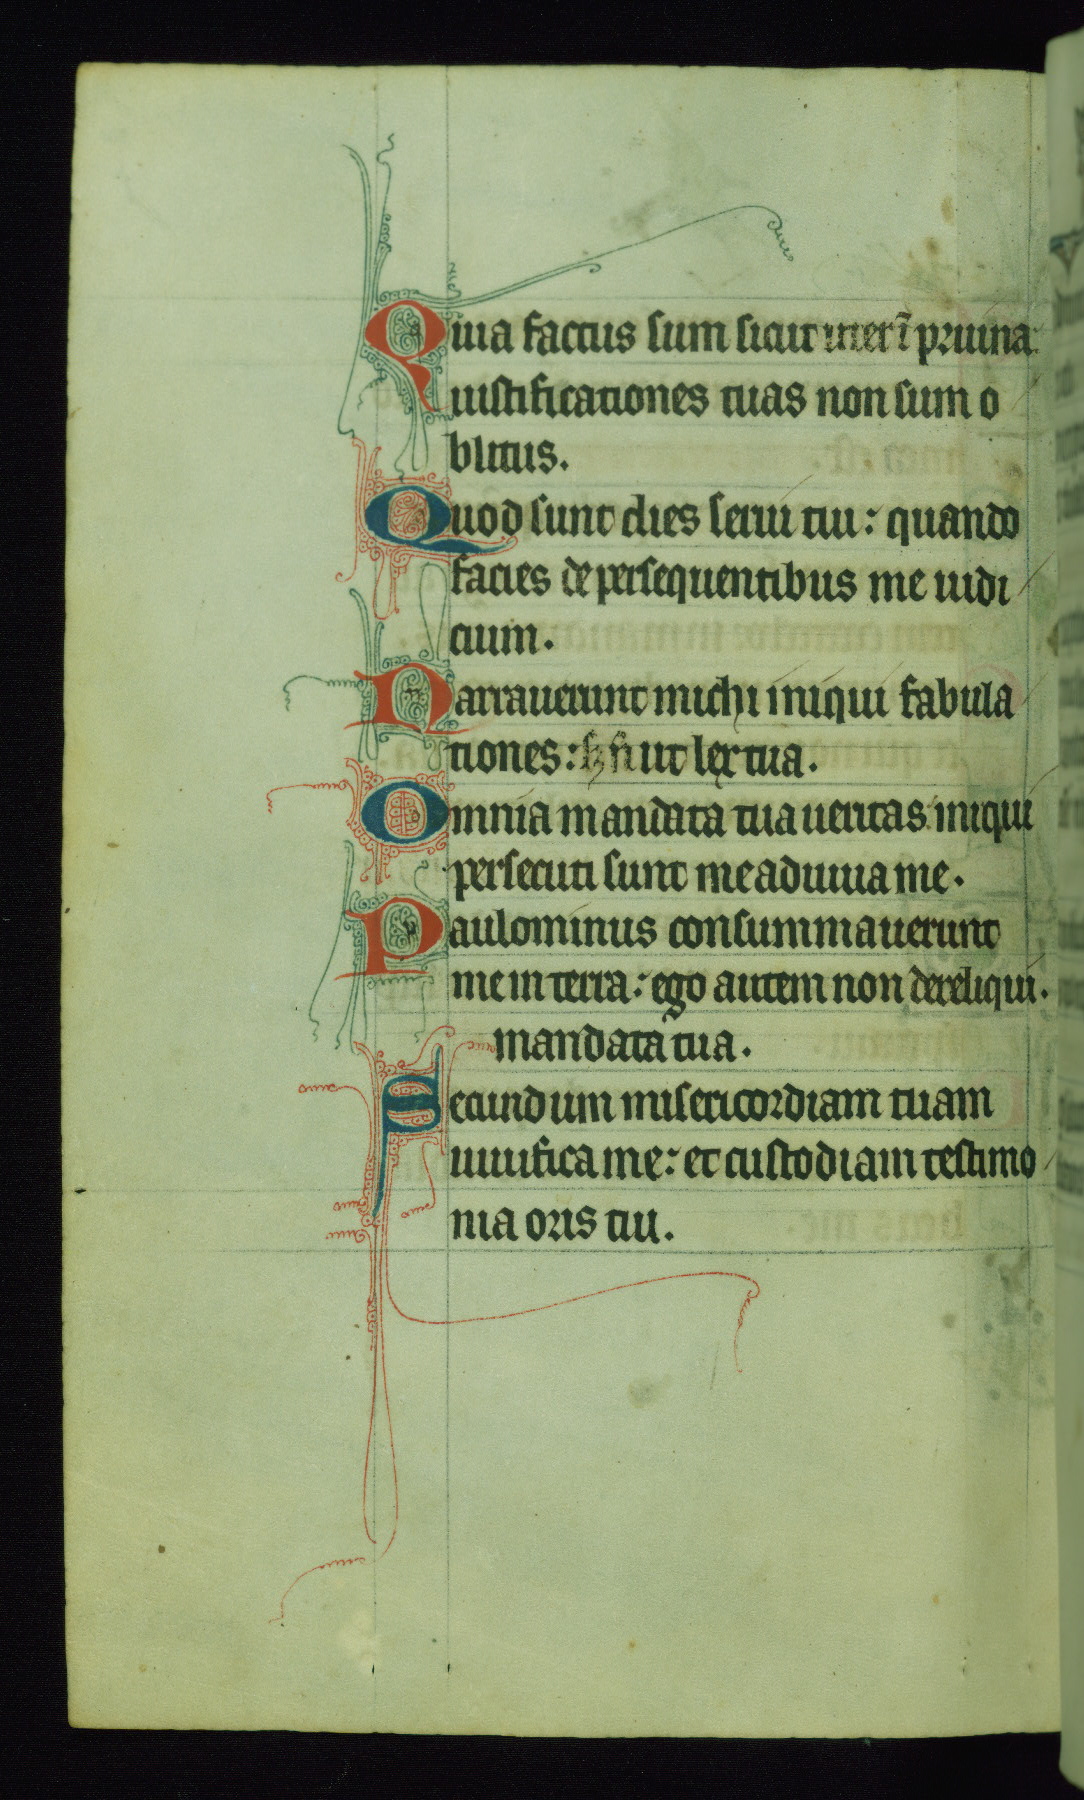 Quia factus sum sicut uter ĩ pruina:
iustificationes tuas non sum o
blitus.
Quod sunt dies serui tui: quando
facies de persequentibus me iudi
cium.
Narrauerunt michi iniqui fabula
tiones: ut lex tua.
Omnia mandata tua ueritas iniqui
persecuti sunt me adiuua me.
Paulominus consummauerunt
me in terra: ego autem non dereliqui.
mandata tua.
Secundum misericordiam tuam
uiuifica me: et custodiam testimo
nia oris tui.